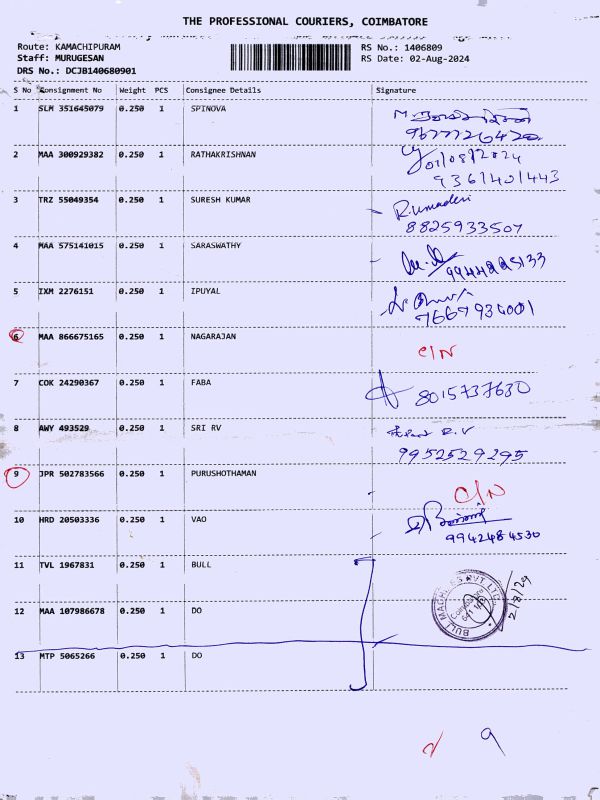 THE PROFESSIONAL COURIERS, COIMBATORE
Route: KAMACHIPURAM
Staff: MURUGESAN
DRS No.: DCJB140680901
RS No.: 1406809
RS Date: 02-Aug-2024
S No Consignment No Weight PCS Consignee Details Signature
1 SLM 351645079 0.250 1 SPINOVA
9677726420
2 MAA 300929382 0.250 1 RATHAKRISHNAN
9361401443
3 TRZ 55049354 0.250 1 SURESH KUMAR R.umadevi
8825933507
4 MAA 575141015 0.250 1 SARASWATHY
9944225133
5 IXM 2276151 0.250 1 IPUYAL
6 MAA 866675165 0.250 1 NAGARAJAN C/N
7 COK 24290367 0.250 1 FABA 8015737630
8 AWY 493529 0.250 1 SRI RV
9952529295
9 JPR 502783566 0.250 1 PURUSHOTHAMAN C/N
10 HRD 20503336 0.250 1 VAO
9942484530
11 TVL 1967831 0.250 1 BULL
12 MAA 107986678 0.250 1 DO
13 MTP 5065266 0.250 1 DO
9